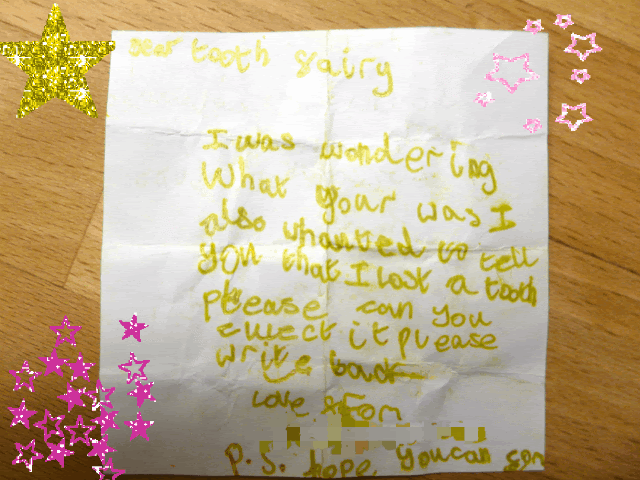 dear tooth fairy
I was wondering
what your was I
also whanted to tell
you that I lost a tooth
please can you
cwect it please
write back
love from
P.S. hope you can